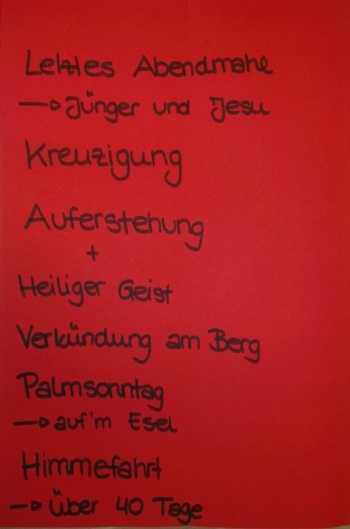 Letztes Abendmahl
→ Jünger und Jesu
Kreuzigung
Auferstehung
+
Heiliger Geist
Verkündung am Berg
Palmsonntag
→ auf'm Esel
Himmefahrt
→ über 40 Tage